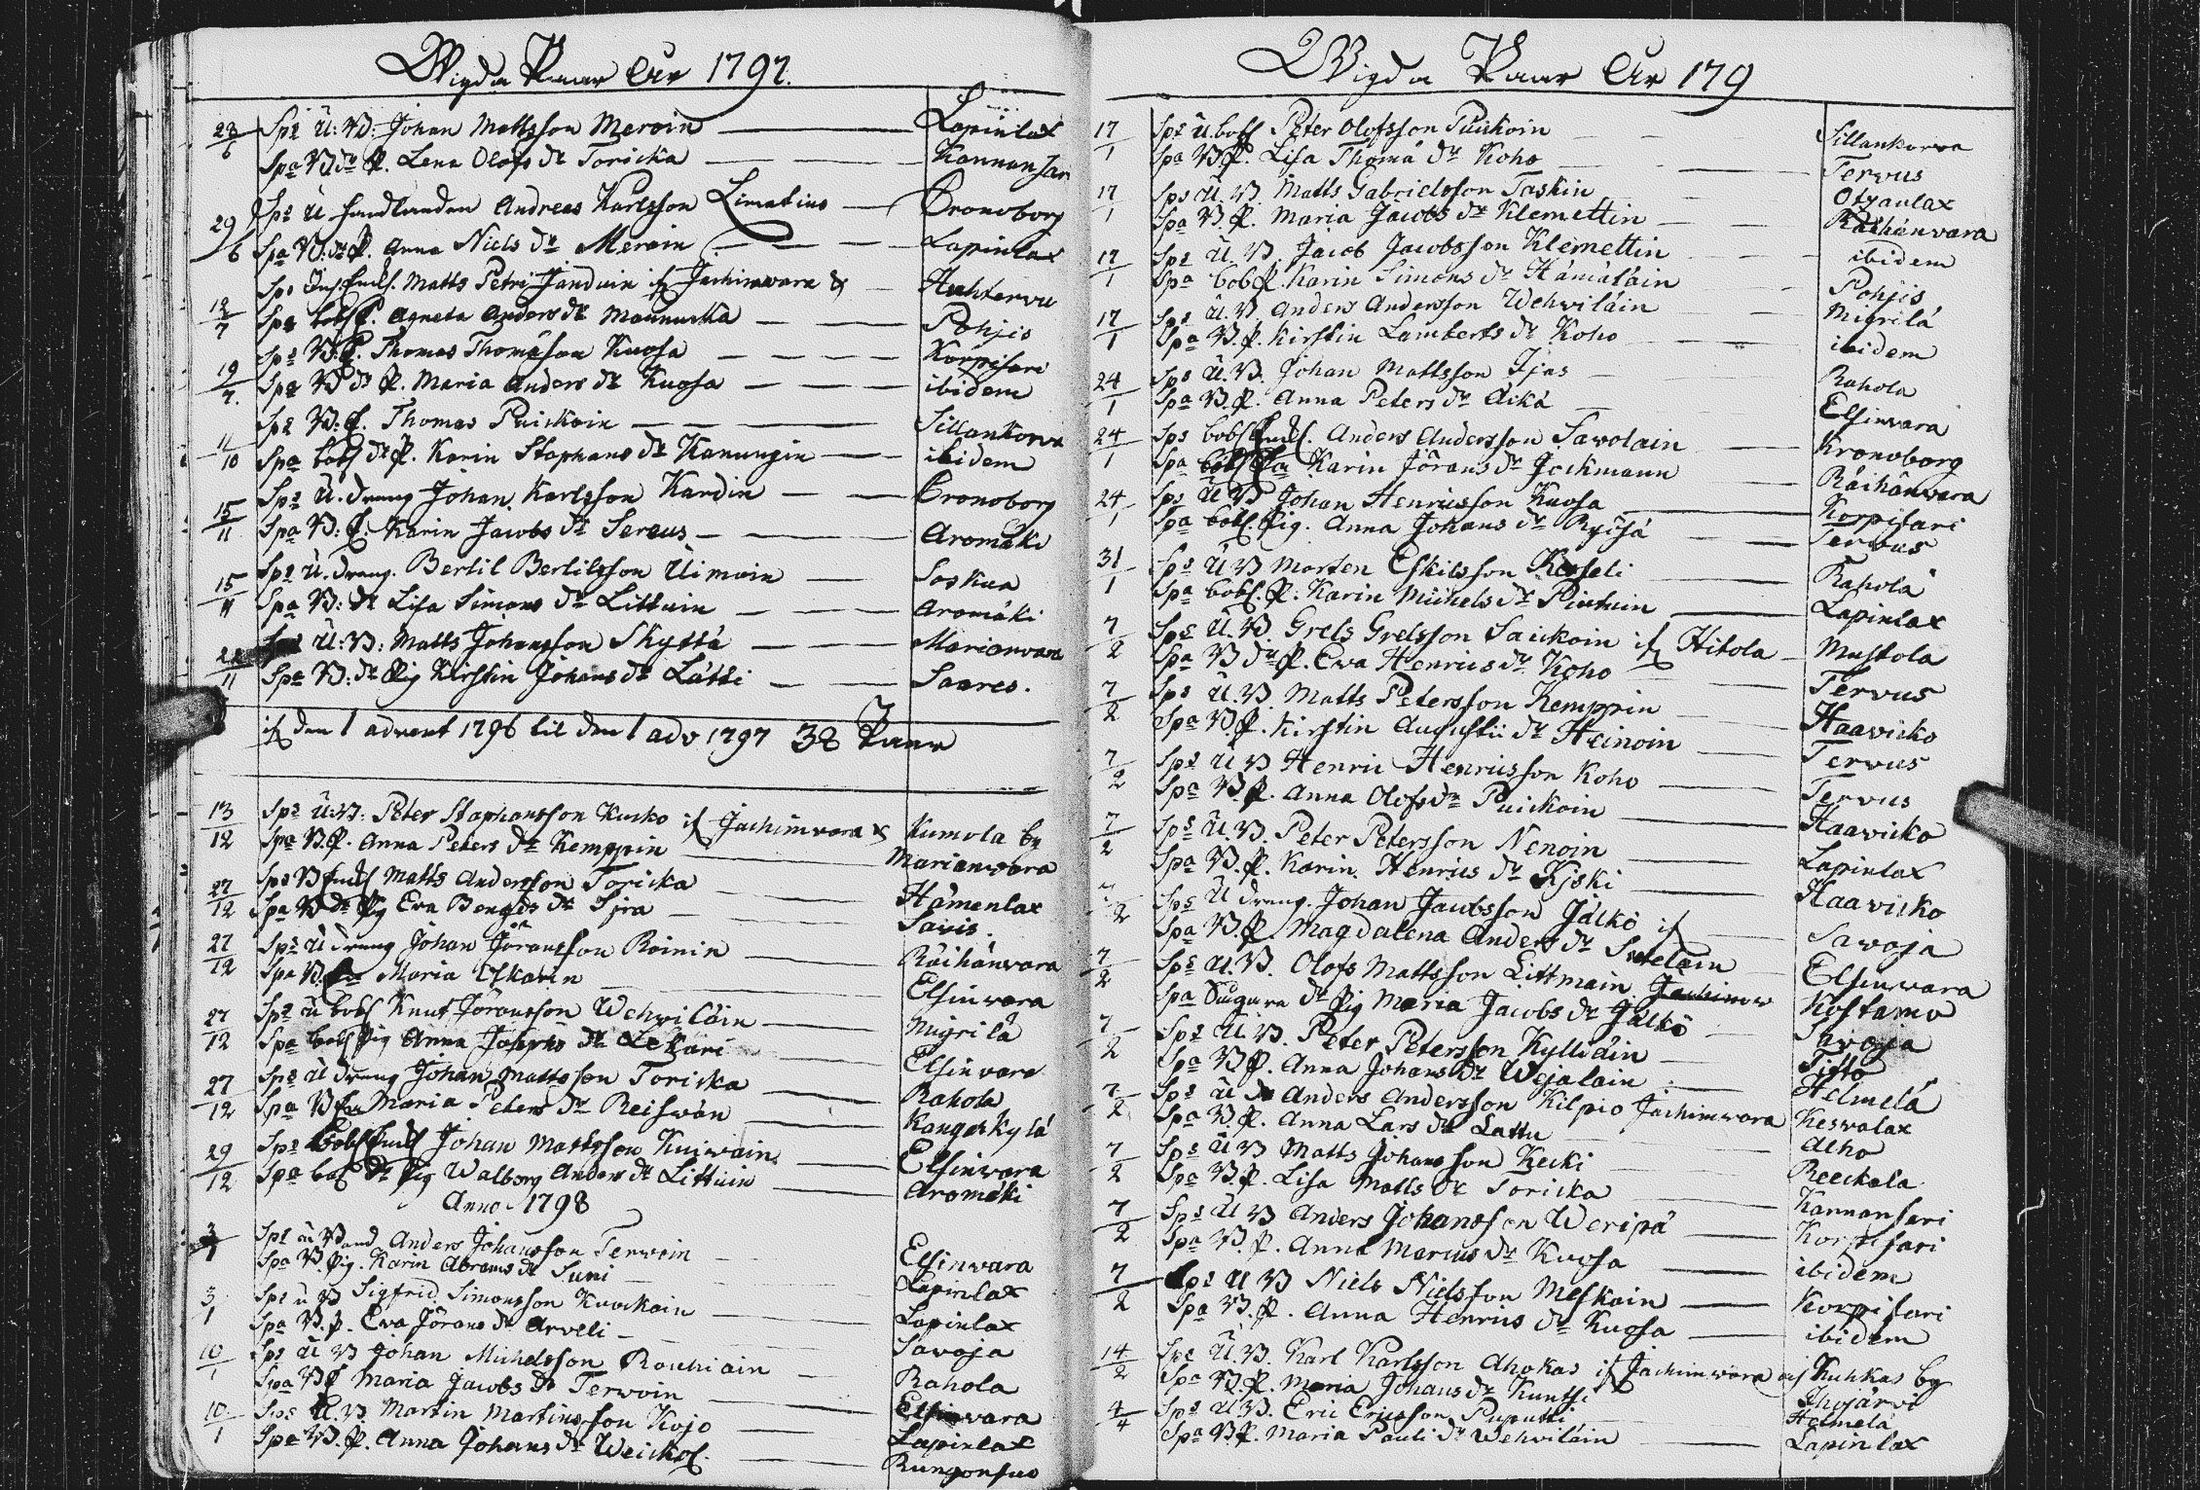 Wigda Paar År 1797.
28/6 Sps U: B: Johan Mattsson Meroin Lapinlax
Spa B dr P. Lena Olofs dr Toricka Kannansari
29/6 Sps U handlanden Andreas Karlsson Limatius Cronoborg
Spa B: dr P. Anna Niels dr Meroin Lapinlax
Sps Matts Petri Janduin if Jachimwara Huhtervu
12/7 Spa bobs P. Agneta Anders dr Mannurta Pohjis
Sps B. Thomas Thomasson Kuosa Korpisari
19/7 Spa B dr P. Maria Anders dr Kuosa ibidem
Sps B: Thomas Puickoin Sillankorva
11/10 Spa bobs dr P. Karin Staphans dr Kanungin ibidem
Sps U. dreng Johan Karlsson Kardin Cronoborg
15/11 Spa B: P: Karin Jacobs dr Sereus Aromäki
Sps U. dreng. Bertil Bertilsson Uimoin Soskua
15/11 Spa B: dr Lisa Simons dr Littuin Aromäki
U: B: Matts Johansson Skyttä Marianvara
22/11 Spa B: dr Pig Kirstin Johans dr Lätti Saares.
if den 1 advent 1796 til den 1 adv 1797 38 Paar
13/12 Sps U: B: Peter Staphansson Kurko if Jachimvara Kumola by
Spa B. P. Anna Peters dr Kemppin Marianvara
27/12 Sps B Matts Andersson Toricka Hämenlax
Spa B dr Pig Eva Bengts dr Sjra Savis.
27/12 Sps U dreng Johan Jöransson Roinin Räihänvara
Spa B. Maria Ickavin Elsinvara
27/12 Sps U bobs Knut Jöransson Wehviläin Migrilä
Spa bobs Pig Anna Josephs dr Leskari Elsinvara
27/12 Sps U dreng Johan Mattsson Toricka Rahola
Spa B Maria Peters dr Reiswän Kangaskylä
29/12 Sps bobs Johan Mattsson Kuiwain Elsinvara
Spa bobs dr Pig Walborg Anders dr Littuin Aromäki
Anno 1798
3/1 Sps U B Anders Johansson Terwoin Elsinvara
Spa B. Pig. Karin Abrams dr Suni Lapinlax
3/1 Sps U B Sigfrid Simonsson Kuockain Lapinlax
Spa B. P. Eva Jörans dr Arveli Savoja
10/1 Sps U B Johan Michelsson Rouhiain Rahola
Spa B P Maria Jacobs dr Terwoin Elsinvara
10/1 Sps U. B. Martin Martinsson Kojo Lapinlax
Spa B. P. Anna Johans dr Weickol. Rungonsuo
Wigda Paar År 179
17/1 Sps U. bobs Peter Olofsson Puickoin Sillankorva
Spa B P. Lisa Thoma dr Koho Tervus
17/1 Sps U. B. Matts Gabrielsson Taskin Otzanlax
Spa B. P. Maria Jacobs dr Klemettin Räihänvara
17/1 Sps U. B. Jacob Jacobsson Klemettin ibidem
Spa bobs P. Karin Simons dr Hämäläin Pohjis
17/1 Sps U. B. Anders Andersson Wehwiläin Migrilä
Spa B. P. Kirstin Lamberts dr Koho ibidem
24/1 Sps U. B. Johan Mattsson Ijas Rahola
Spa B. P. Anna Peters dr Äikä Elsinvara
24/1 Sps bobs Anders Andersson Savolain Kronoborg
Spa bobs Karin Jörans dr Jockmann Räihänvara
24/1 Sps U B Johan Henricsson Kuosa Korpisari
Spa bobs. Pig. Anna Johans dr Ryösä Tervus
31/1 Sps U B Morten Eskilsson Kesseli Rahola
Spa bobs. P. Karin Michels dr Pintuin Lapinlax
7/2 Sps U. B. Grels Grelsson Saickoin if Hitola Mustola
Spa B dr P. Eva Henrics dr Koho Tervus
7/2 Sps U. B. Matts Petersson Kemppin Haavicko
Spa B. P. Kirstin Augusti dr Heinoin Tervus
7/2 Sps U B Henric Henricsson Koho Tervus
Spa B. P. Anna Olofs dr Puickoin Haavicko
7/2 Sps U. B. Peter Petersson Nenoin Lapinlax
Spa B. P. Karin Henrics dr Kjski Haavicko
7/2 Sps U dreng. Johan Jacobsson Jälkö if Savoja
Spa B. P. Magdalena Anders dr Suttelain Elsinvara
7/2 Sps U. B. Olofs Mattsson Littmain Jachimov Kostamo
Spa Dr Pig Maria Jacobs dr Jälkö Savoja
7/2 Sps U. B. Peter Petersson Kylliäin Titto
Spa B P. Anna Johans dr Wejalain Helmelä
7/2 Sps U Anders Andersson Kilpio Jachimvara Keswalax
Spa B. P. Anna Lars dr Lattu Alho
7/2 Sps U B Matts Johansson Kecki Reeckala
Spa B. P. Lisa Matts dr Toricka Kannansari
7/2 Sps U B Anders Johansson Weripä Korpisari
Spa B. P. Anna Marcus dr Kuosa ibidem
7/2 Sps U B Niels Nielsson Meskain Korpisari
Spa B. P. Anna Henrics dr Kuosa ibidem
14/2 Sps U. B. Karl Karlsson Ahokas if Jachimwara och Kuhkas by
Spa B. P. Maria Johans dr Kuntsi Ihojärvi
4/4 Sps U B. Eric Ericsson Puputti Helmelä
Spa B. P. Maria Pauli dr Wehviläin Lapinlax